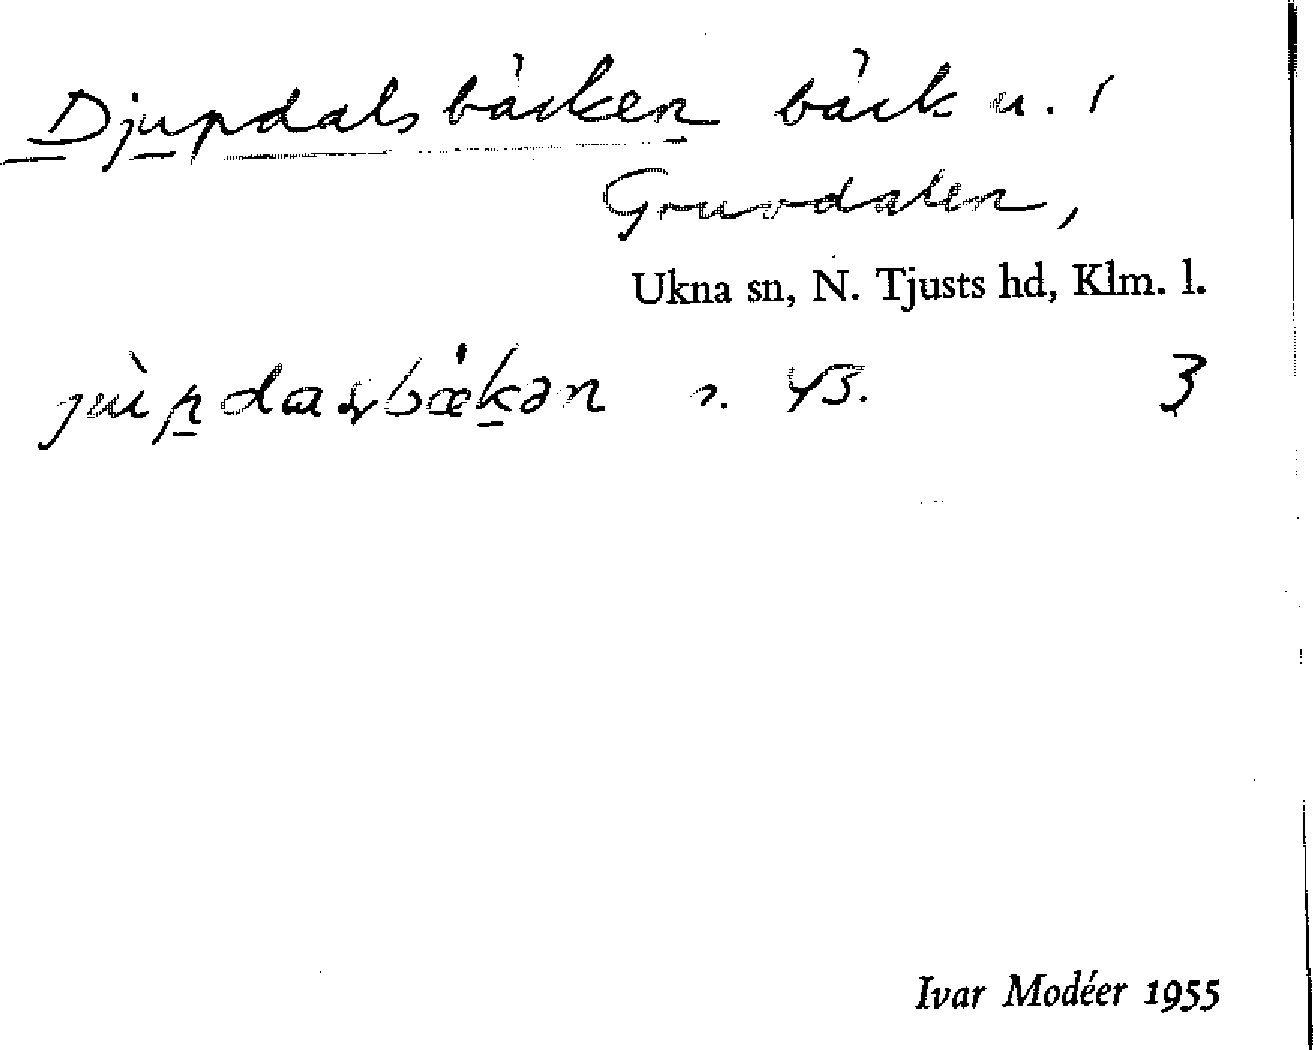 Djupdalsbäcken bäck u. i
Gruvdalen,
Ukna sn, N. Tjusts hd, Klm. l.
3
Ivar Modéer 1955